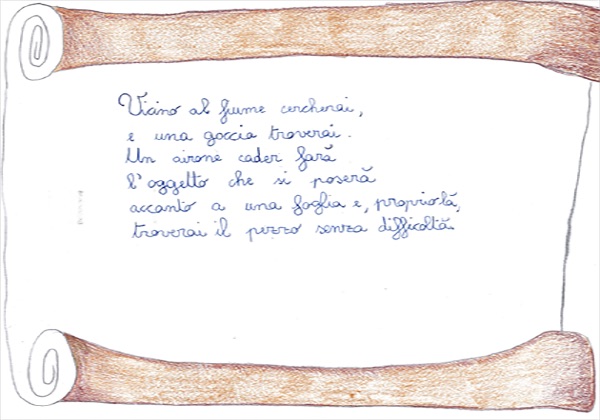 Vicino al fiume cercherai,
e una goccia troverai.
Un airone cader farà
l'oggetto che si poserà
accanto a una foglia e, proprio là,
troverai il pezzo senza difficoltà.